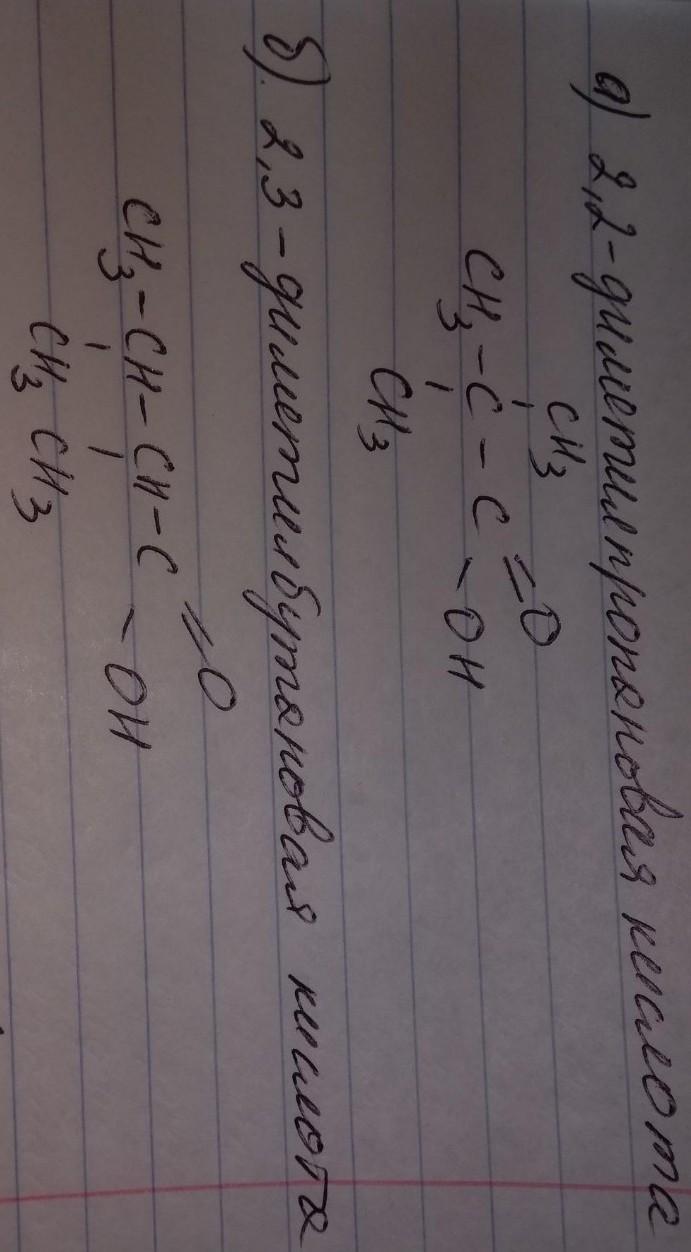 а) 2,2-диметилпропановая кислота
CH3
CH3-C-C=O
-OH
CH3
б) 2,3-диметилбутановая кислота
CH3-CH-CH-C=O
-OH
CH3 CH3